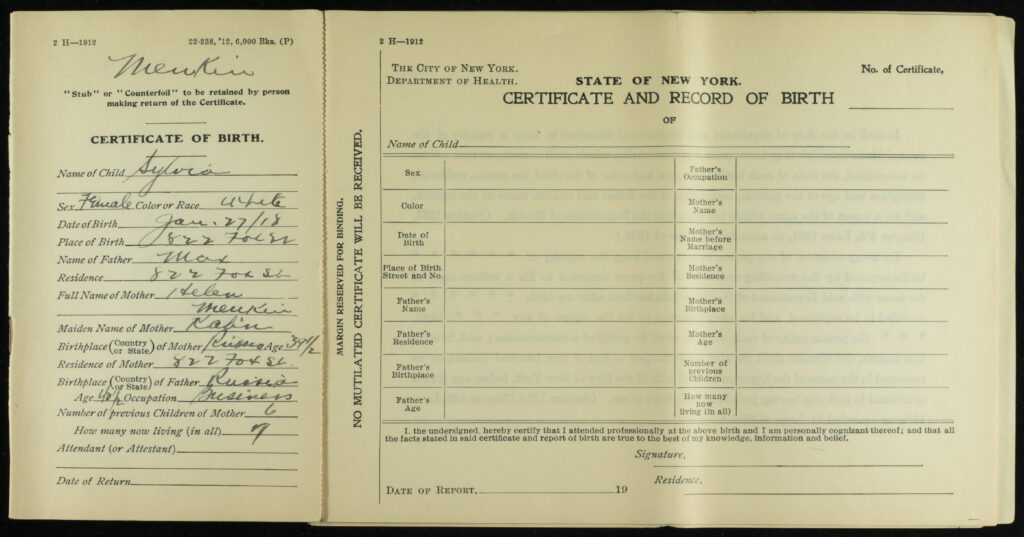 2 H—1912 22-238, '12, 6,000 Bks. (P)
Menkin
"Stub" or "Counterfoil" to be retained by person
making return of the Certificate.
CERTIFICATE OF BIRTH.
Name of Child Sylvia
Sex Female Color or Race White
Date of Birth Jan. 27/18
Place of Birth 822 Fox St
Name of Father Max
Residence 822 Fox St.
Full Name of Mother Helen
Menkin
Maiden Name of Mother
Birthplace (Country or State) of Mother Russia Age 39 1/2
Residence of Mother 822 Fox St.
Birthplace (Country or State) of Father Russia
Age Occupation Business
Number of previous Children of Mother 6
How many now living (in all) 7
Attendant (or Attestant)
Date of Return
2 H—1912
THE CITY OF NEW YORK.
DEPARTMENT OF HEALTH.
STATE OF NEW YORK.
No. of Certificate,
CERTIFICATE AND RECORD OF BIRTH
OF
Name of Child
MARGIN RESERVED FOR BINDING.
NO MUTILATED CERTIFICATE WILL BE RECEIVED.
Sex
Father's Occupation
Color
Mother's Name
Date of Birth
Mother's Name before Marriage
Place of Birth Street and No.
Mother's Residence
Father's Name
Mother's Birthplace
Father's Residence
Mother's Age
Father's Birthplace
Number of previous Children
Father's Age
How many now living (in all)
I, the undersigned, hereby certify that I attended professionally at the above birth and I am personally cognizant thereof; and that all
the facts stated in said certificate and report of birth are true to the best of my knowledge, information and belief.
Signature,
Residence,
DATE OF REPORT, 19